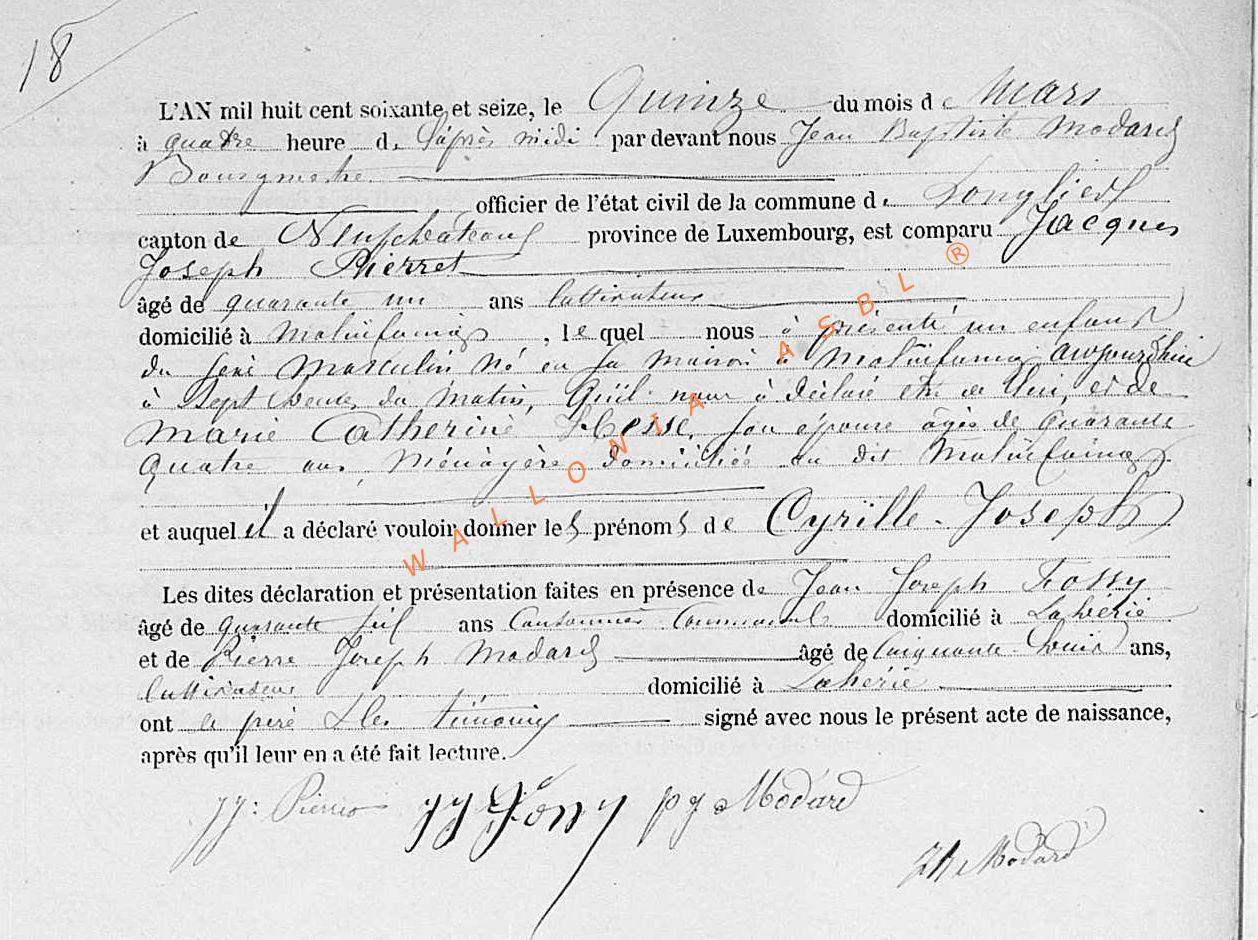 18
L'AN mil huit cent soixante et seize, le Quinze du mois de Mars
à quatre heure de l'après midi par devant nous Jean Baptiste Modard
Bourgmestre
officier de l'état civil de la commune de Longlier
canton de Neufchateau province de Luxembourg, est comparu Jacques
Joseph Pierret
âgé de quarante un ans cultivateur
domicilié à Molinfaing, lequel nous à présenté un enfant
du sexe masculin né en sa maison à Molinfaing aujourd'hui
à sept heures du matin, qu'il nous à déclaré être de lui, et de
Marie Catherine son épouse âgée de quarante
quatre ans, Ménagère domiciliée au dit Molinfaing
et auquel il a déclaré vouloir donner les prénoms de Cyrille Joseph
Les dites déclaration et présentation faites en présence de Jean Joseph
âgé de quarante ans Cantonnier Communal domicilié à Laherie
et de Pierre Joseph Modard âgé de Cinquante ans,
cultivateur domicilié à Laherie
ont le père & les témoins signé avec nous le présent acte de naissance,
après qu'il leur en a été fait lecture.
JJ: Pierret JJ pj Modard
Modard
WALLONIA ASBL ®